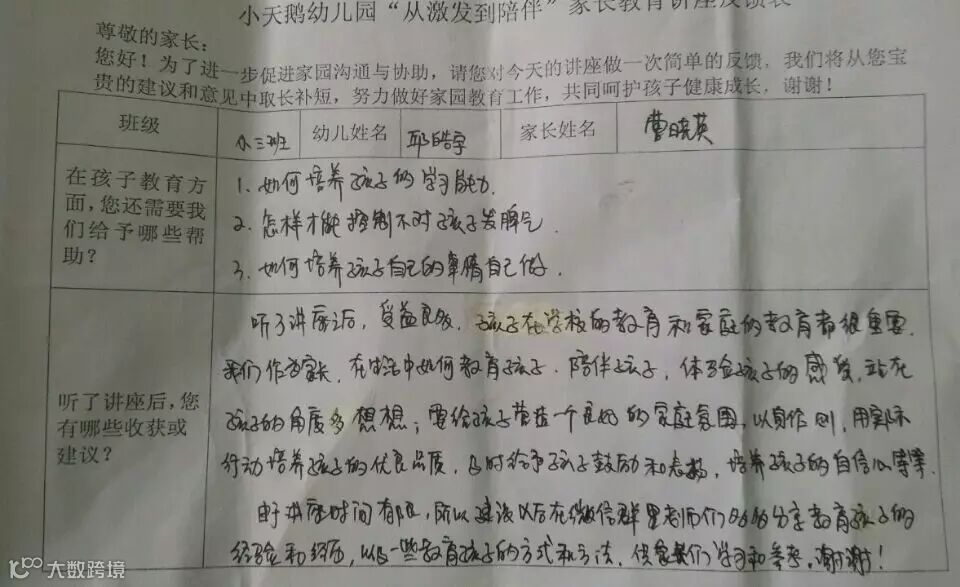 小天鹅幼儿园“从激发到陪伴”家长教育讲座反馈表
尊敬的家长：
您好！为了进一步促进家园沟通与协助，请您对今天的讲座做一次简单的反馈，我们将从您宝
贵的建议和意见中取长补短，努力做好家园教育工作，共同呵护孩子健康成长，谢谢！
班级 小三班 幼儿姓名 邱皓宇 家长姓名 曹晓英
在孩子教育方
面，您还需要我
们给予哪些帮
助？
1. 如何培养孩子的学习能力.
2. 怎样才能控制不对孩子发脾气.
3. 如何培养孩子自己的事情自己做.
听了讲座后，您
有哪些收获或
建议？
听了讲座后，受益良多，孩子在学校的教育和家庭的教育都很重要.
我们作为家长，在生活中如何教育孩子.陪伴孩子，体验孩子的感觉，站在
孩子的角度多想想；要给孩子营造一个良好的家庭氛围，以身作则，用实际
行动培养孩子的优良品质，及时给予孩子鼓励和表扬，培养孩子的自信心等等.
由于讲座时间有限，所以建议以后在微信群里老师们多多分享教育孩子的
经验和经历，以及一些教育孩子的方式和方法，供家长们学习和参考，谢谢！
大数跨境